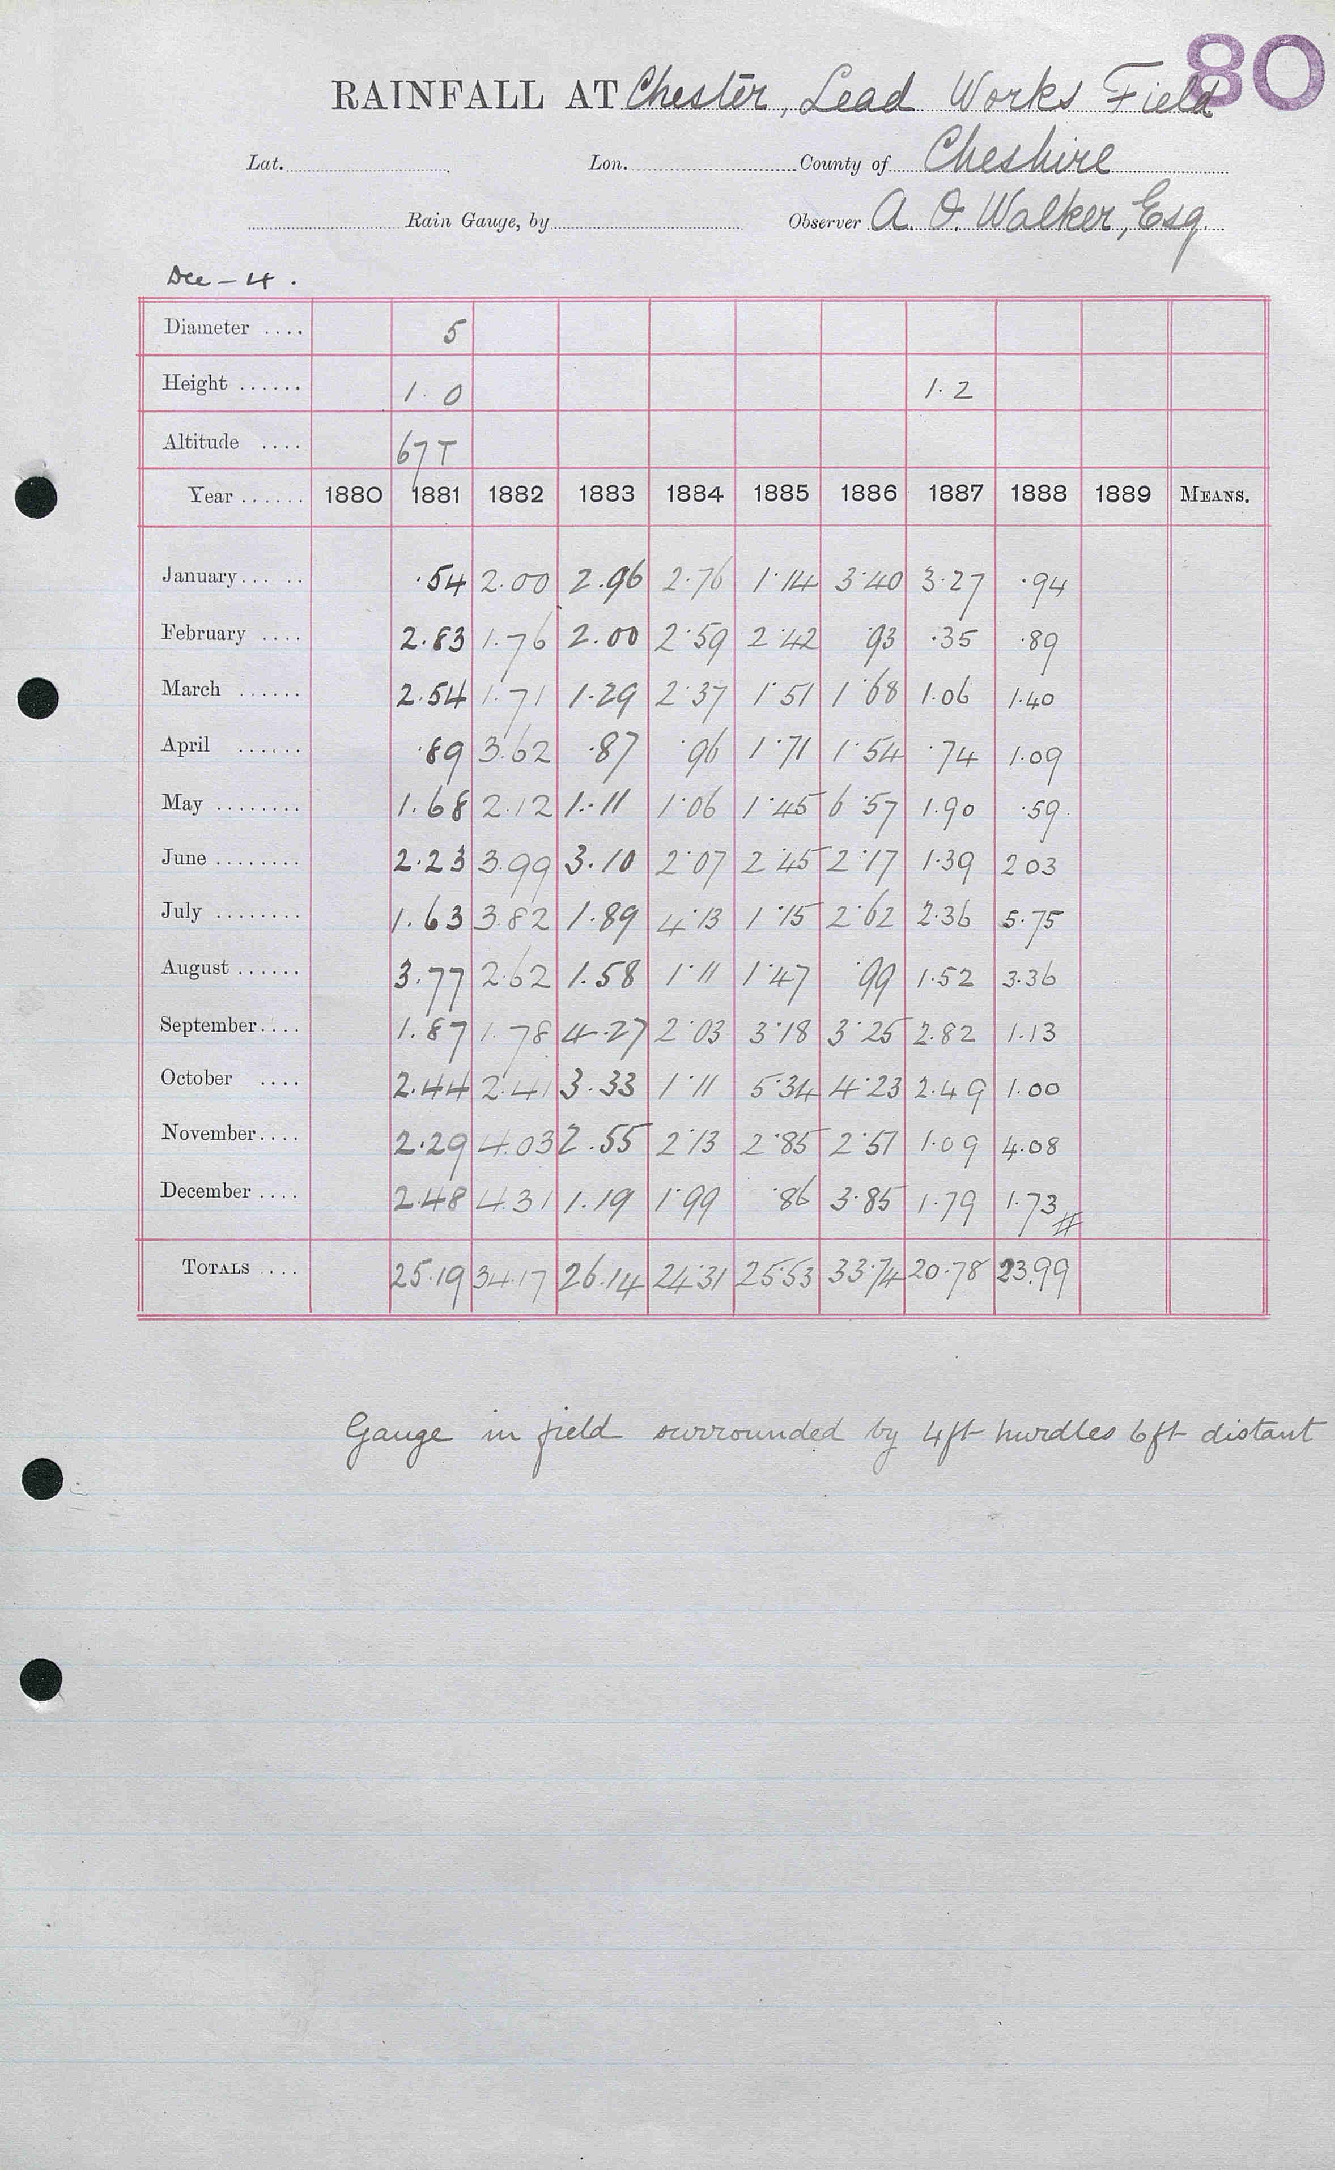 80
RAINFALL AT Chester, Lead Works Field
Lat. Lon. County of Cheshire
Rain Gauge, by Observer A. O. Walker, Esq.
Dec - 4.
Diameter .... 5
Height ...... 1.0 1.2
Altitude .... 67 T
Year ...... 1880 1881 1882 1883 1884 1885 1886 1887 1888 1889 MEANS.
January... .. .54 2.00 2.96 2.76 1.14 3.40 3.27 .94
February .... 2.83 1.76 2.00 2.59 2.42 .93 .35 .89
March ...... 2.54 1.71 1.29 2.37 1.51 1.68 1.06 1.40
April ...... .89 3.62 .87 .96 1.71 1.54 .74 1.09
May ........ 1.68 2.12 1.11 1.06 1.45 6.57 1.90 .59
June ........ 2.23 3.99 3.10 2.07 2.45 2.17 1.39 2 03
July ........ 1.63 3.82 1.89 4.13 1.15 2.62 2.36 5.75
August ...... 3.77 2.62 1.58 1.11 1.47 .99 1.52 3.36
September.... 1.87 1.78 4.27 2.03 3.18 3.25 2.82 1.13
October .... 2.44 2.41 3.33 1.11 5.34 4.23 2.49 1.00
November.... 2.29 4.03 2.55 2.13 2.85 2.51 1.09 4.08
December .... 2.48 4.31 1.19 1.99 .86 3.85 1.79 1.73
TOTALS .... 25.19 34.17 26.14 24.31 25.53 33.74 20.78 23.99
Gauge in field surrounded by 4ft hurdles 6ft distant